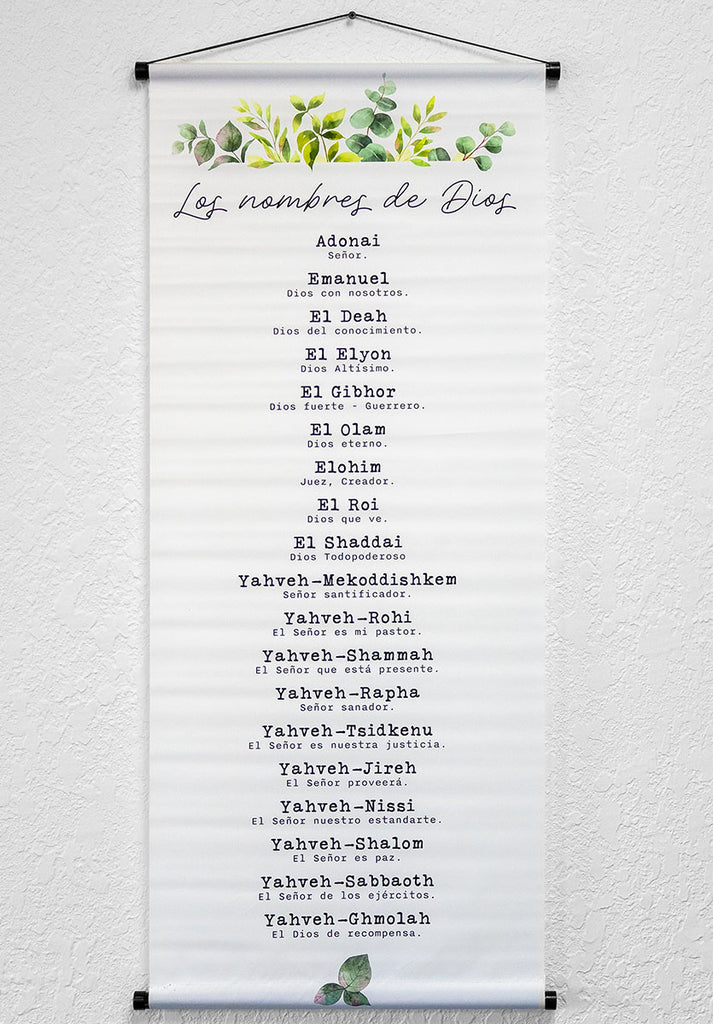 Los nombres de Dios
Adonai
Señor.
Emanuel
Dios con nosotros.
El Deah
Dios del conocimiento.
El Elyon
Dios Altísimo.
El Gibhor
Dios fuerte - Guerrero.
El Olam
Dios eterno.
Elohim
Juez, Creador.
El Roi
Dios que ve.
El Shaddai
Dios Todopoderoso
Yahveh-Mekoddishkem
Señor santificador.
Yahveh-Rohi
El Señor es mi pastor.
Yahveh-Shammah
El Señor que está presente.
Yahveh-Rapha
Señor sanador.
Yahveh-Tsidkenu
El Señor es nuestra justicia.
Yahveh-Jireh
El Señor proveerá.
Yahveh-Nissi
El Señor nuestro estandarte.
Yahveh-Shalom
El Señor es paz.
Yahveh-Sabbaoth
El Señor de los ejércitos.
Yahveh-Ghmolah
El Dios de recompensa.